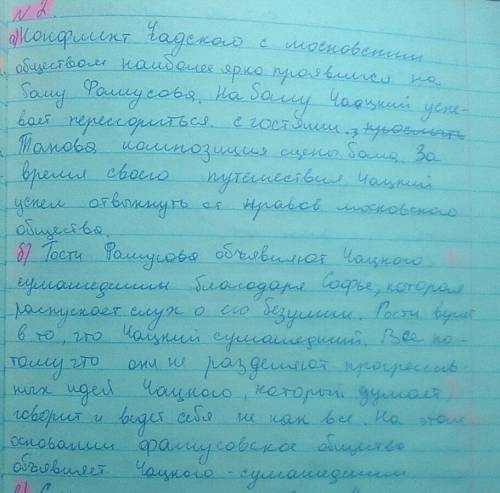 № 2
а) Конфликт Чадского с московским
обществом наиболее ярко проявился на
балу Фамусова. На балу Чаацкий успе-
вает перессориться с гостями.
Такова композиция сцены бала. За
время своего путешествия Чацкий
успел отвыкнуть от нравов московского
общества.
б) Гости Фамусова объявляют Чацкого
сумасшедшим благодаря Софье, которая
распускает слух о его безумии. Гости верят
в то, что Чацкий сумашедший. Все по-
тому что они не разделяют прогрессив-
ных идей Чацкого, который думает,
говорит и ведет себя не как все. На этом
основании фамусовское общество
объявляет Чацкого - сумашедшим